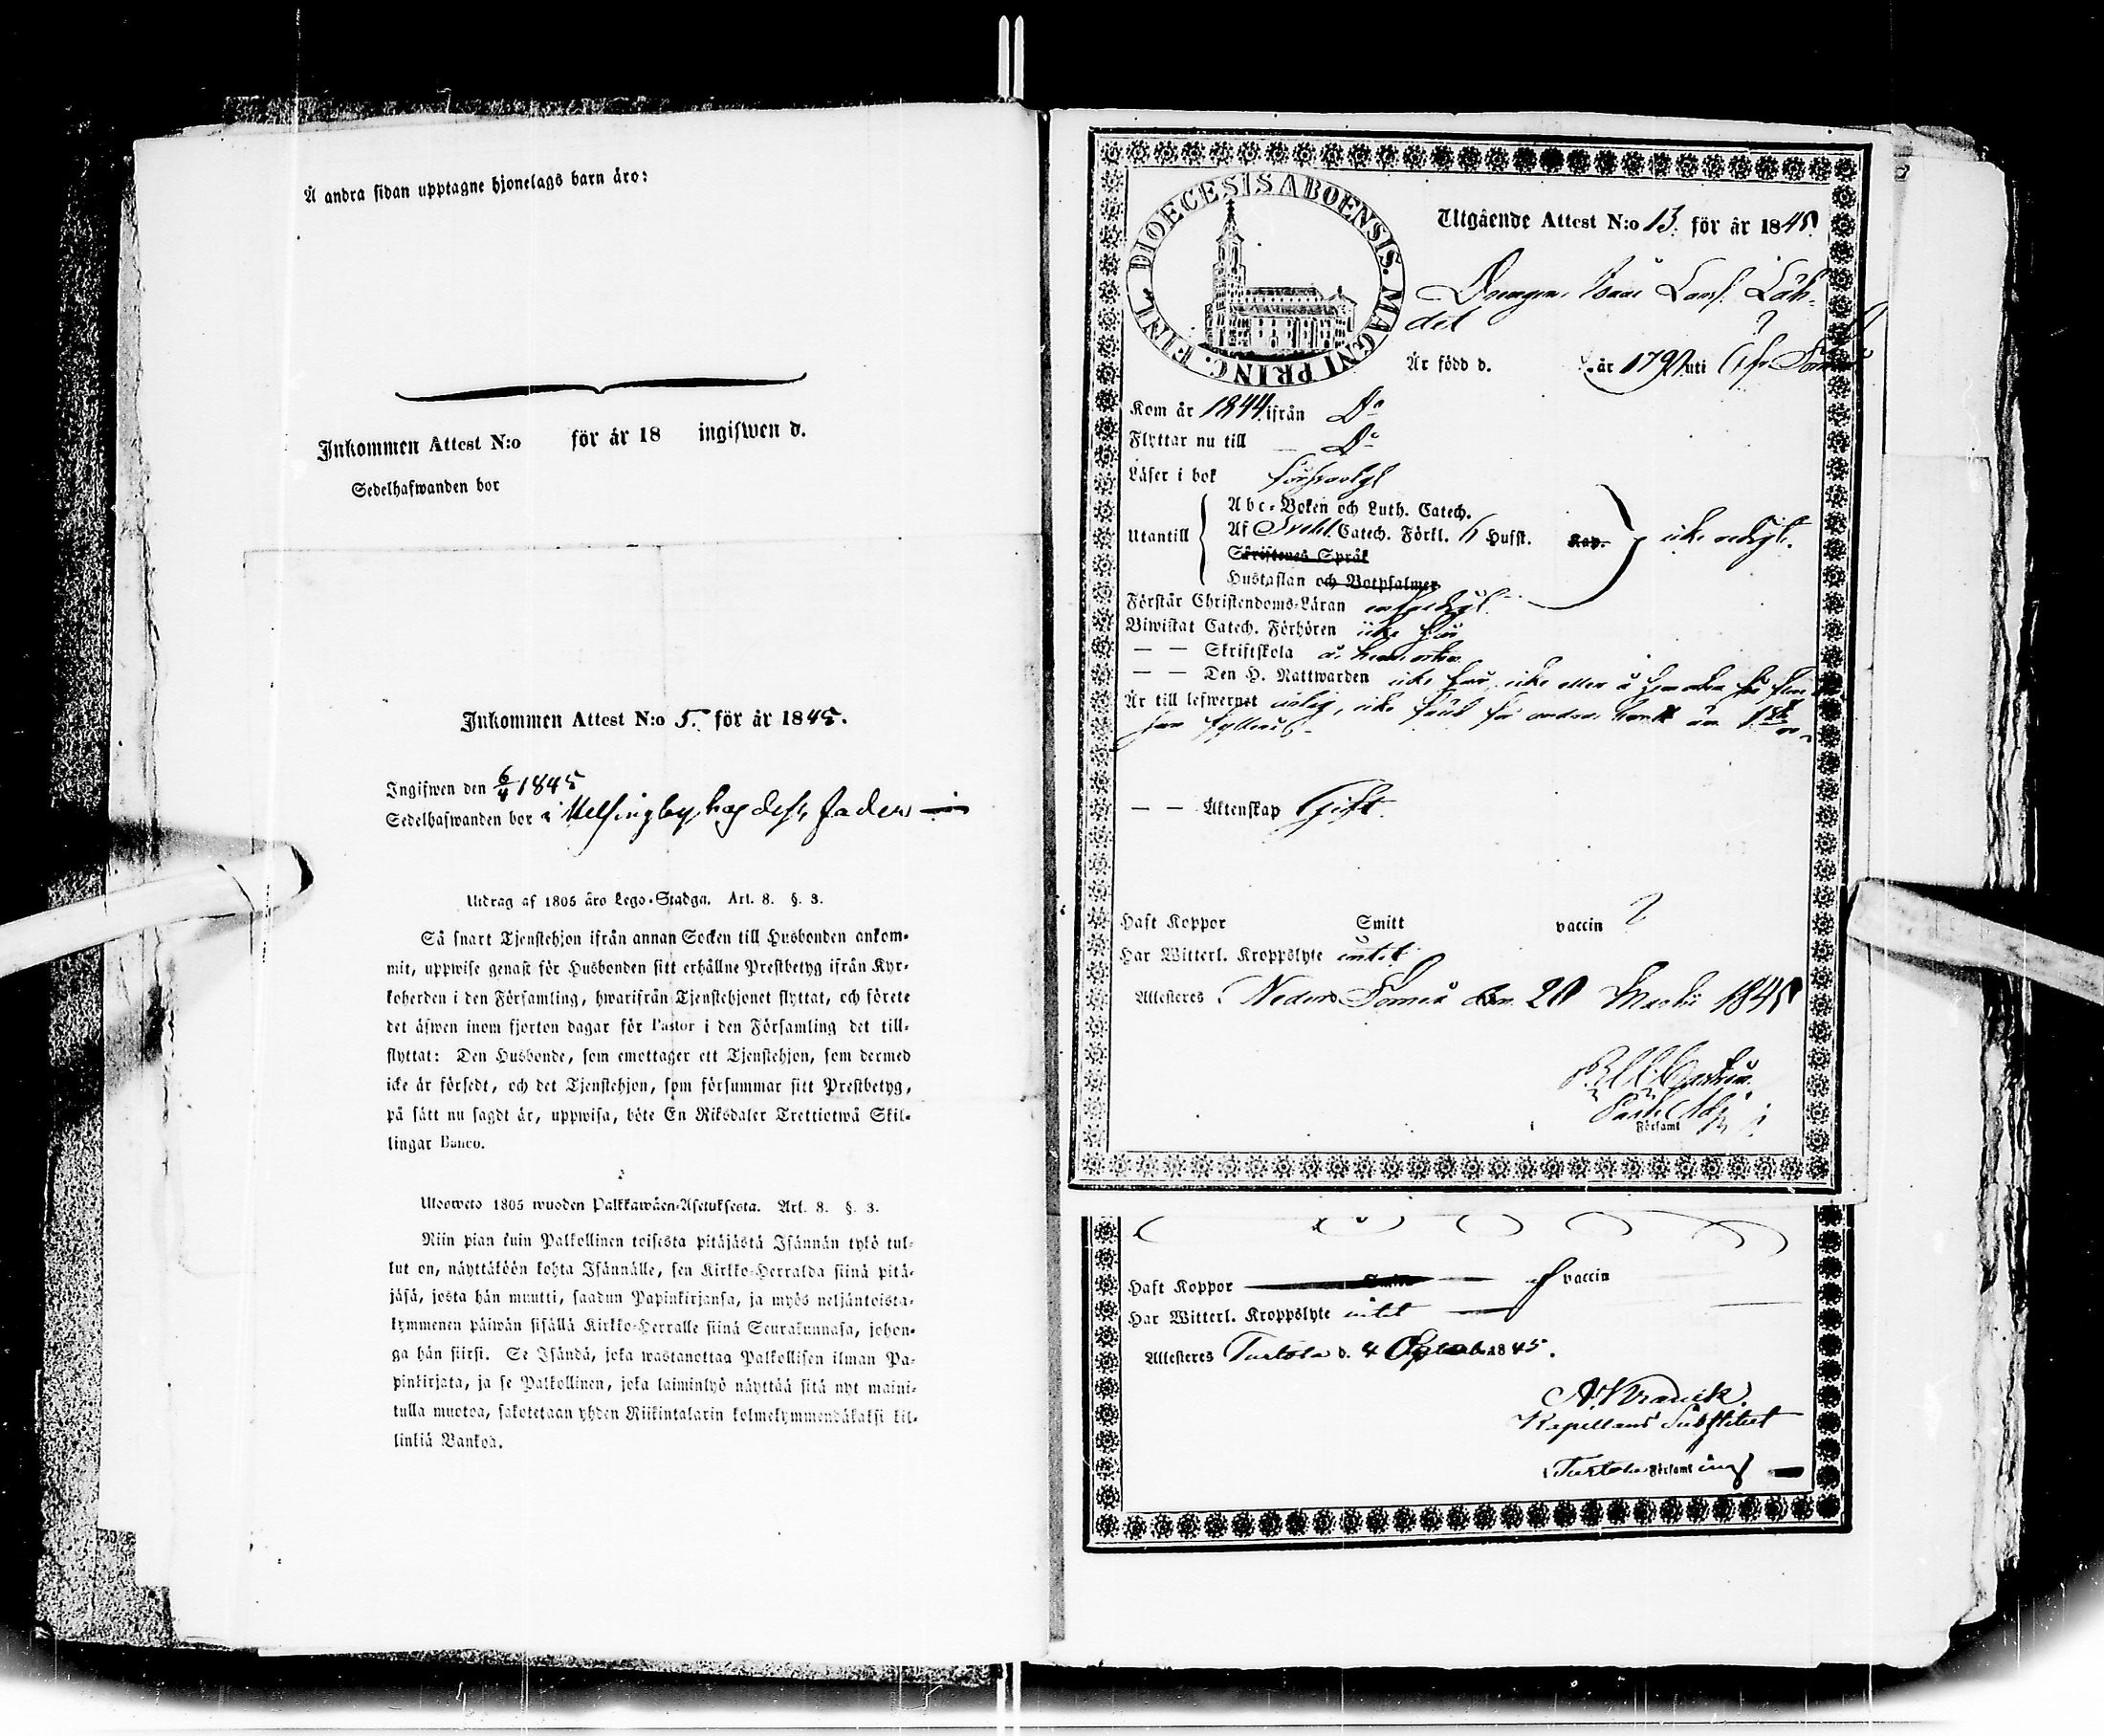 Å andra sidan upptagne hjonelags barn äro:
Inkommen Attest N:o för år 18 ingifwen d.
Sedelhafwanden bor
Inkommen Attest N:o 5. för år 1845.
Ingifwen den 6/4 1845
Sedelhafwanden bor i Helsingby hos dess fader
Utdrag af 1805 års Lego-Stadga. Art. 8. §. 3.
Så snart Tjenstehjon ifrån annan Socken till Husbonden ankom-
mit, uppwise genast för Husbonden sitt erhållne Prestbetyg ifrån Kyr-
koherden i den Församling, hwarifrån Tjenstehjonet flyttat, och förete
det äfwen inom fjorton dagar för Pastor i den Församling det till-
flyttat: Den Husbonde, som emottager ett Tjenstehjon, som dermed
icke är försedt, och det Tjenstehjon, som försummar sitt Prestbetyg,
på sätt nu sagdt är, uppwisa, böte En Riksdaler Trettiotwå Skil-
lingar Banco.
Ulosweto 1805 wuoden Palkkawäen-Asetuksesta. Art. 8. §. 3.
Niin pian kuin Palkollinen toisesta pitäjästä Isännän tykö tul-
lut on, näyttäköön kohta Isännälle, sen Kirkko-Herralda siinä pitä-
jäsä, josta hän muutti, saadun Papinkirjansa, ja myös neljäntoista-
kymmenen päiwän sisällä Kirkko-Herralle siinä Seurakunnasa, johon-
ga hän siirsi. Se Isändä, joka wastanottaa Palkollisen ilman Pa-
pinkirjata, ja se Palkollinen, joka laiminlyö näyttää sitä nyt maini-
tulla muotoa, sakotetaan yhden Riikintalarin kolmekymmendäkaksi kil-
linkiä Bankoa.
DIOECESIS ABOENSIS. MAGNI PRINC. FINL.
Utgående Attest N:o 13. för år 1845.
Drengen Isac
det
Är född d. år 179 uti
Kom år 1844 ifrån Do
Flyttar nu till Do
Läser i bok försvarligt
Abc-Boken och Luth. Catech.
Utantill Af Svebil. Catech. Förkl. Hufst. Kap. icke
Skriftenes Språk
Hustaflan och Botpsalmer
Förstår Christendoms-Läran
Biwistat Catech. Förhören icke här
— — Skriftskola
— — Den H. Nattwarden icke här, icke eller å
Är till lefwernet icke
— — Äktenskap Gift.
Haft Koppor Smitt vaccin ?
Har Witterl. Kroppslyte intet
Attesteres Neder Torneå den 20 Martii 1845
Församl
Haft Koppor Smitt af vaccin
Har Witterl. Kroppslyte intet
Attesteres Turtola d. 4 1845.
Kapellans Substitut
i Turtola Församling